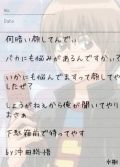 No.
Date
何暗い顔してんでぃ
バカにも悩みがあるんですかぃ?
いかにも悩んでますって顔してや
したぜ?
しょうがねえから俺が聞いてやり
まさぁ
下駄箱前で待ってやす
by沖田総悟